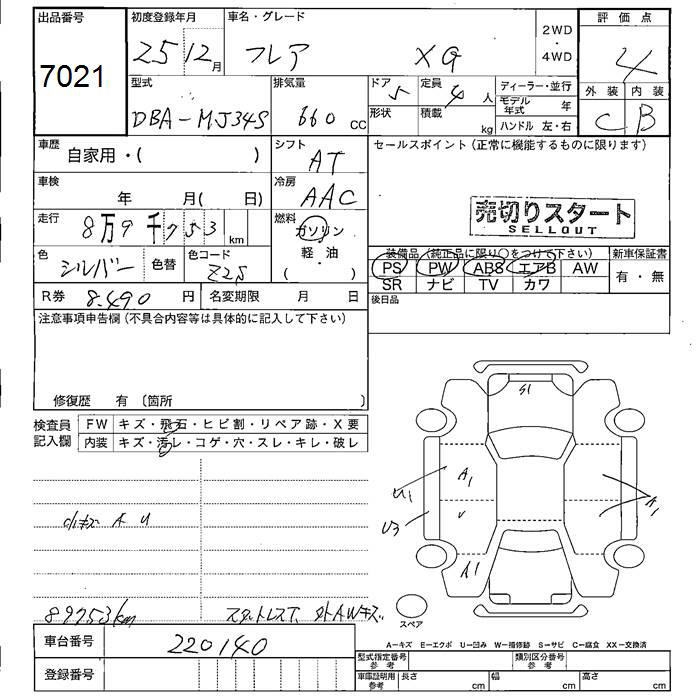 出品番号
7021
初度登録年月
25 12月
車名・グレード
フレア XG
2WD・4WD
評価点
4
型式
DBA-MJ34S
排気量
660 cc
ドア 5
形状
定員 4 人
積載 kg
ディーラー・並行
モデル年式 年
ハンドル 左・右
外装 内装
C B
車歴
自家用・( )
シフト
AT
セールスポイント(正常に機能するものに限ります)
車検
年 月( 日)
冷房
AAC
売切りスタート
SELLOUT
走行
8万9千753 km
燃料
ガソリン
軽・油
( )
色
シルバー
色替
色コード
Z2S
装備品(純正品に限り○をつけて下さい)
PS PW ABS エアB AW
SR ナビ TV カワ
新車保証書
有・無
R券 8,490 円
名変期限 月 日
後日品
注意事項申告欄(不具合内容等は具体的に記入して下さい)
修復歴 有〔箇所 〕
検査員記入欄
FW キズ・飛石・ヒビ割・リペア跡・X要
内装 キズ・汚レ・コゲ・穴・スレ・キレ・破レ
小キズ A U
89753km
スタットレスT、外AWキズ
S1
A1
U1
U3
A1
A1
スペア
A―キズ E―エクボ U―凹み W―補修跡 S―サビ C―腐食 XX―交換済
車台番号
220140
登録番号
型式指定番号 参考
類別区分番号 参考
車庫証明用 参考
長さ cm
幅 cm
高さ cm